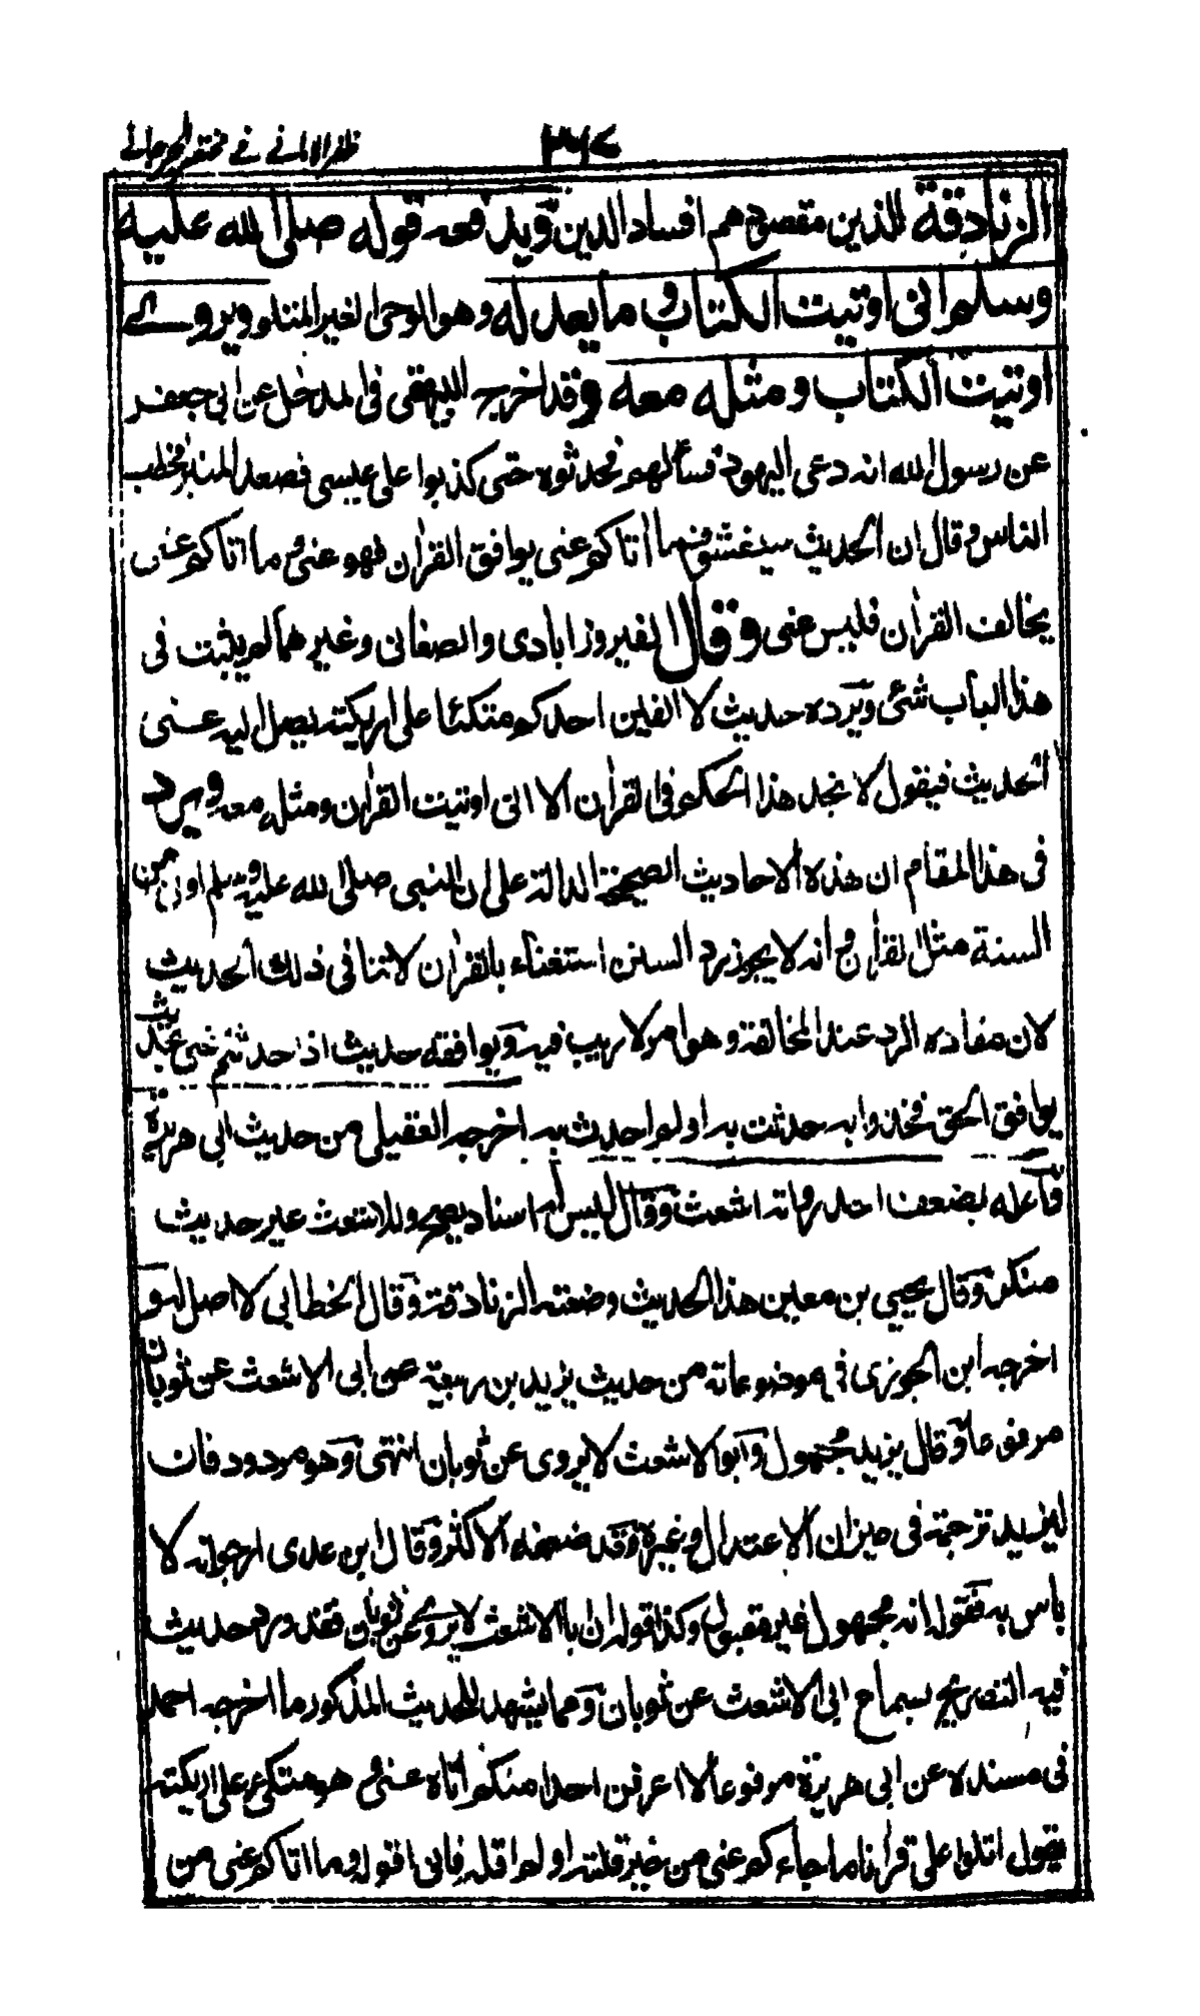 ظفر الامانی فی مختصر الجرجانی
۳۶۷
الزنادقة الذین مقصودهم افساد الدین ویدفعه قوله صلی الله علیه
وسلم انی اوتیت الکتاب وما یعدله وهو الوحی الغیر المتلو ویروے
اوتیت الکتاب ومثله معه وقد اخرجه البیهقی فی المدخل عن ابی جعفر
عن رسول الله انه دعی الیهود فسألهم فحدثوه حتی کذبوا علی عیسی فصعد المنبر فخطب
الناس وقال ان الحدیث سیفشو فما اتاکم عنی یوافق القراٰن فهو عنی وما اتاکم عنی
یخالف القراٰن فلیس عنی وقال الفیروزابادی والصغانی وغیرهما لم یثبت فی
هذا الباب شئ ویرده حدیث لا الفین احدکم متکئا علی اریکته یصل الیه عنی
الحدیث فیقول لا نجد هذا الحکم فی القراٰن الا انی اوتیت القراٰن ومثله معه ویرد
فی هذا المقام ان هذه الاحادیث الصحیحة الدالة علی ان النبی صلی الله علیه وسلم اوتی من
السنة مثل القراٰن وانه لا یجوز رد السنن استغناء بالقراٰن لا تنافی ذلك الحدیث
لان مفاده الرد عند المخالفة وهو امر لا ریب فیه ویوافقه حدیث اذا حدثتم عنی بحدیث
یوافق الحق فخذوا به حدثت به او لم احدث به اخرجه العقیلی من حدیث ابی هریرة
فاعله بضعف احد رواته اشعث وقال لیس له اسناد یصح وللاشعث غیر حدیث
منکر وقال یحیی بن معین هذا الحدیث وضعته الزنادقة وقال الخطابی لا اصل له و
اخرجه ابن الجوزی فی موضوعاته من حدیث یزید بن ربیعة عن ابی الاشعث عن ثوبان
مرفوعا وقال یزید مجهول وابو الاشعث لا یروی عن ثوبان انتهی وهو مردود فان
لیزید ترجمة فی میزان الاعتدال وغیره وقد ضعفه الاکثر وقال ابن عدی ارجو انه لا
باس به فقوله انه مجهول غیر مقبول وکذا قوله ان ابا الاشعث لا یروی عن ثوبان فقد ورد حدیث
فیه التصریح بسماع ابی الاشعث عن ثوبان ومما یشهد للحدیث المذکور ما اخرجه احمد
فی مسنده عن ابی هریرة مرفوعا لا اعرفن احدا منکم اتاه عنی وهو متکئ علی اریکته
یقول اتلوا علی قراٰنا ما جاءکم عنی من خیر قلته او لم اقله فانی اقوله وما اتاکم عنی من